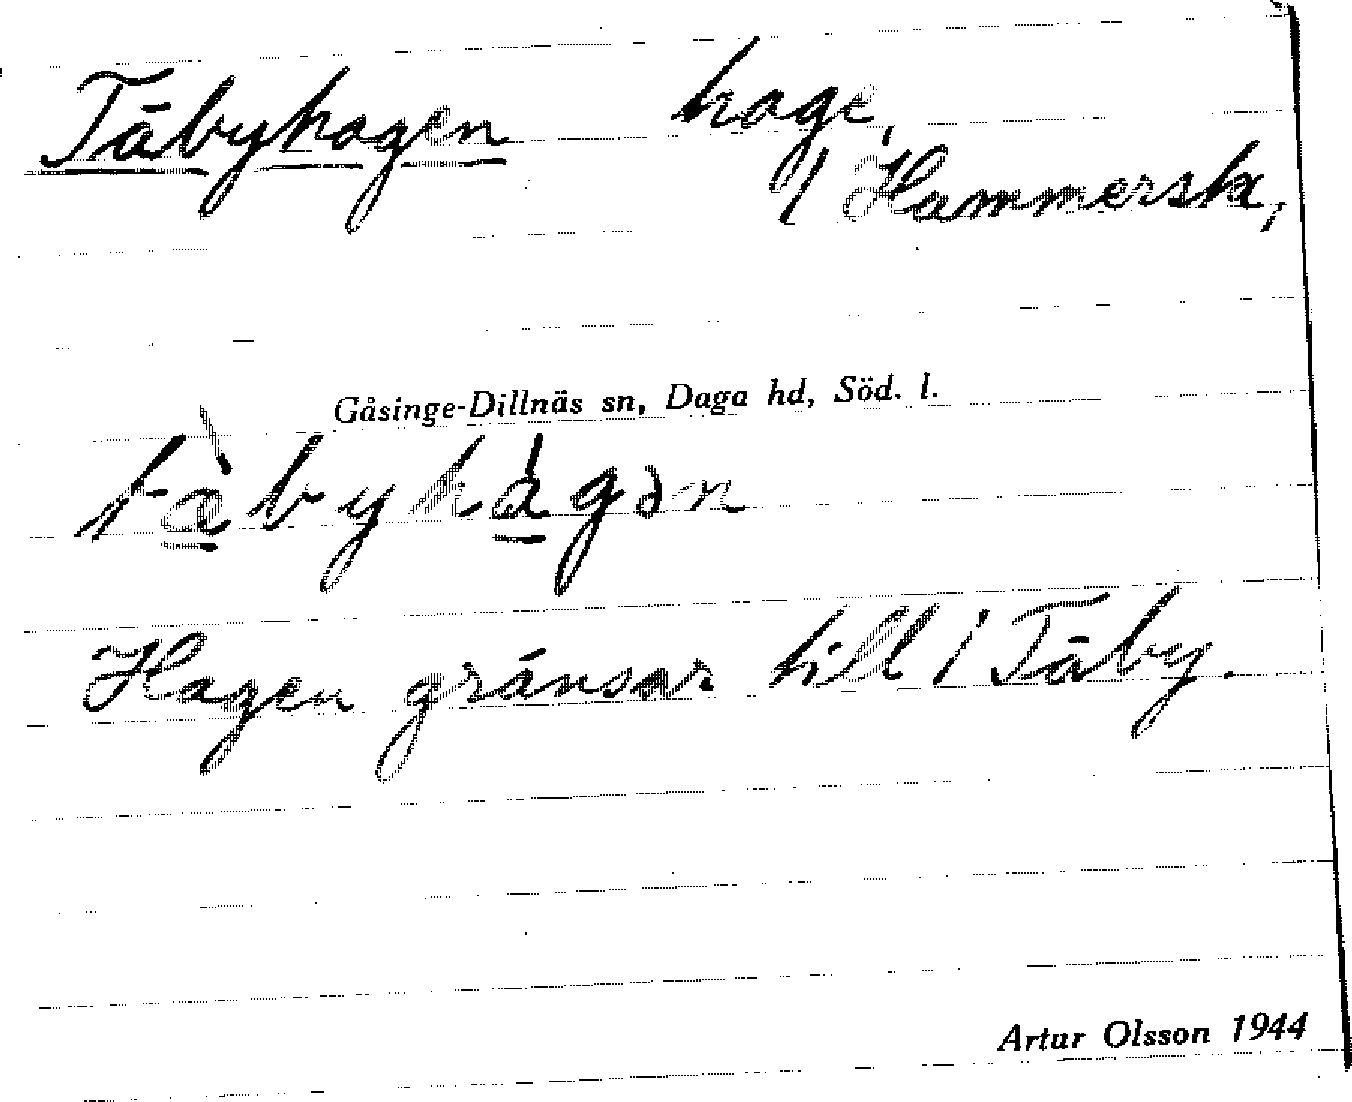 Täbyhagen hage,
/ Hammersta,
Gåsinge-Dillnäs sn, Daga hd, Söd. l.
tàbyhágən
Hagen gränsar till / Täby.
Artur Olsson 1944